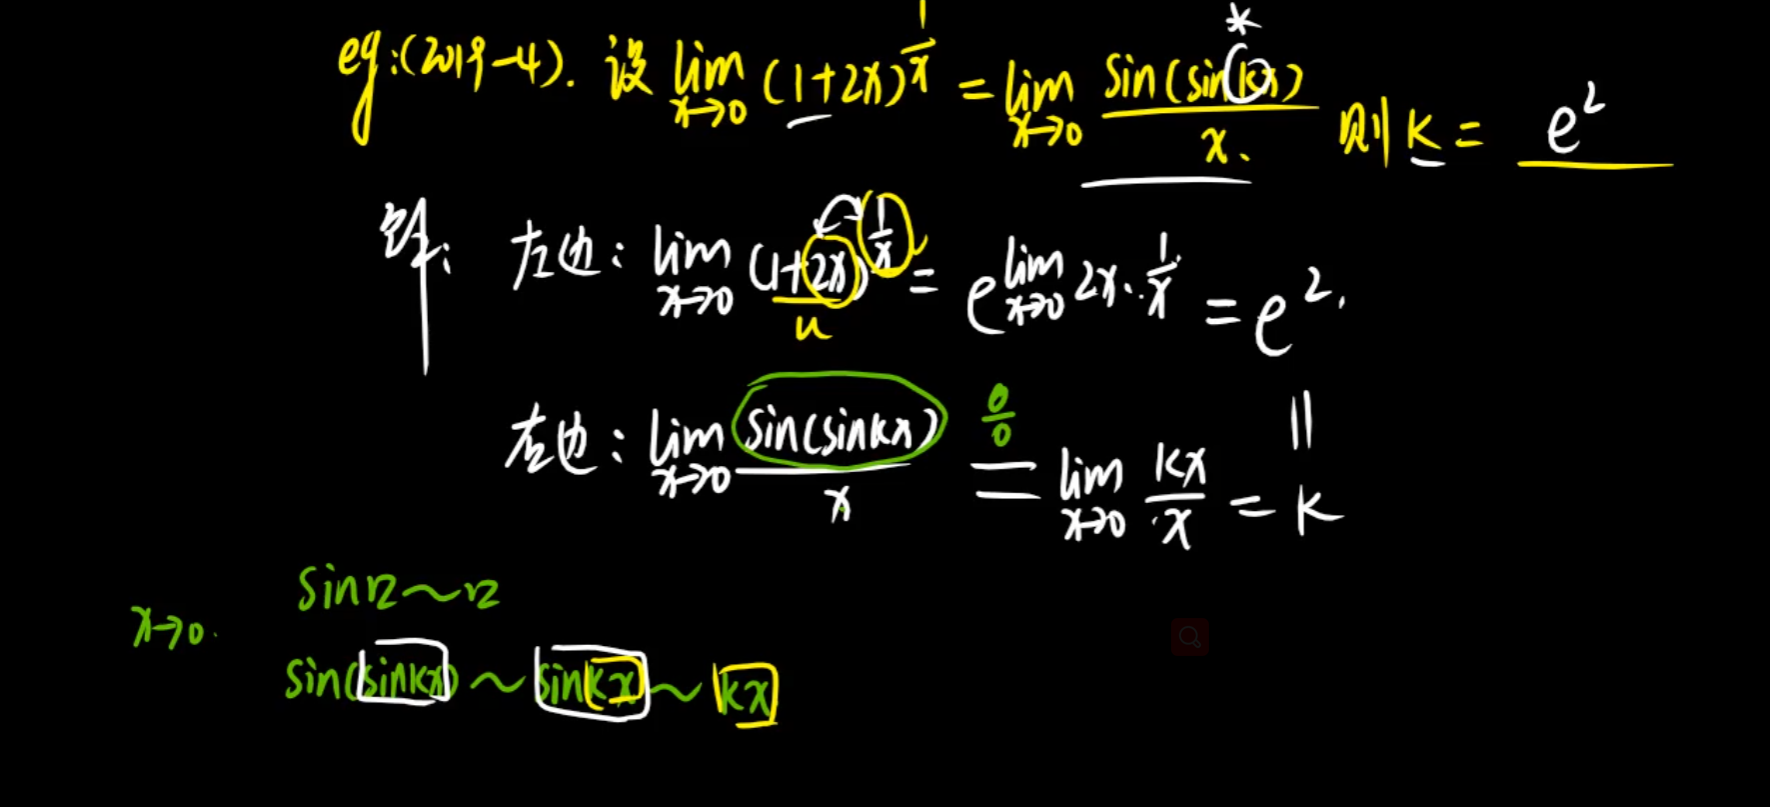 eg:(2019-4). 设 lim x→0 (1+2x)^(1/x) = lim x→0 sin(sinkx)/x. 则 k = e²
*
解: 左边: lim x→0 (1+2x)^(1/x) = e^(lim x→0 2x·1/x) = e².
u
左边: lim x→0 sin(sinkx)/x 0/0 = lim x→0 kx/x = k
||
x→0.
sin口~口
sin(sinkx) ~ sinkx ~ kx